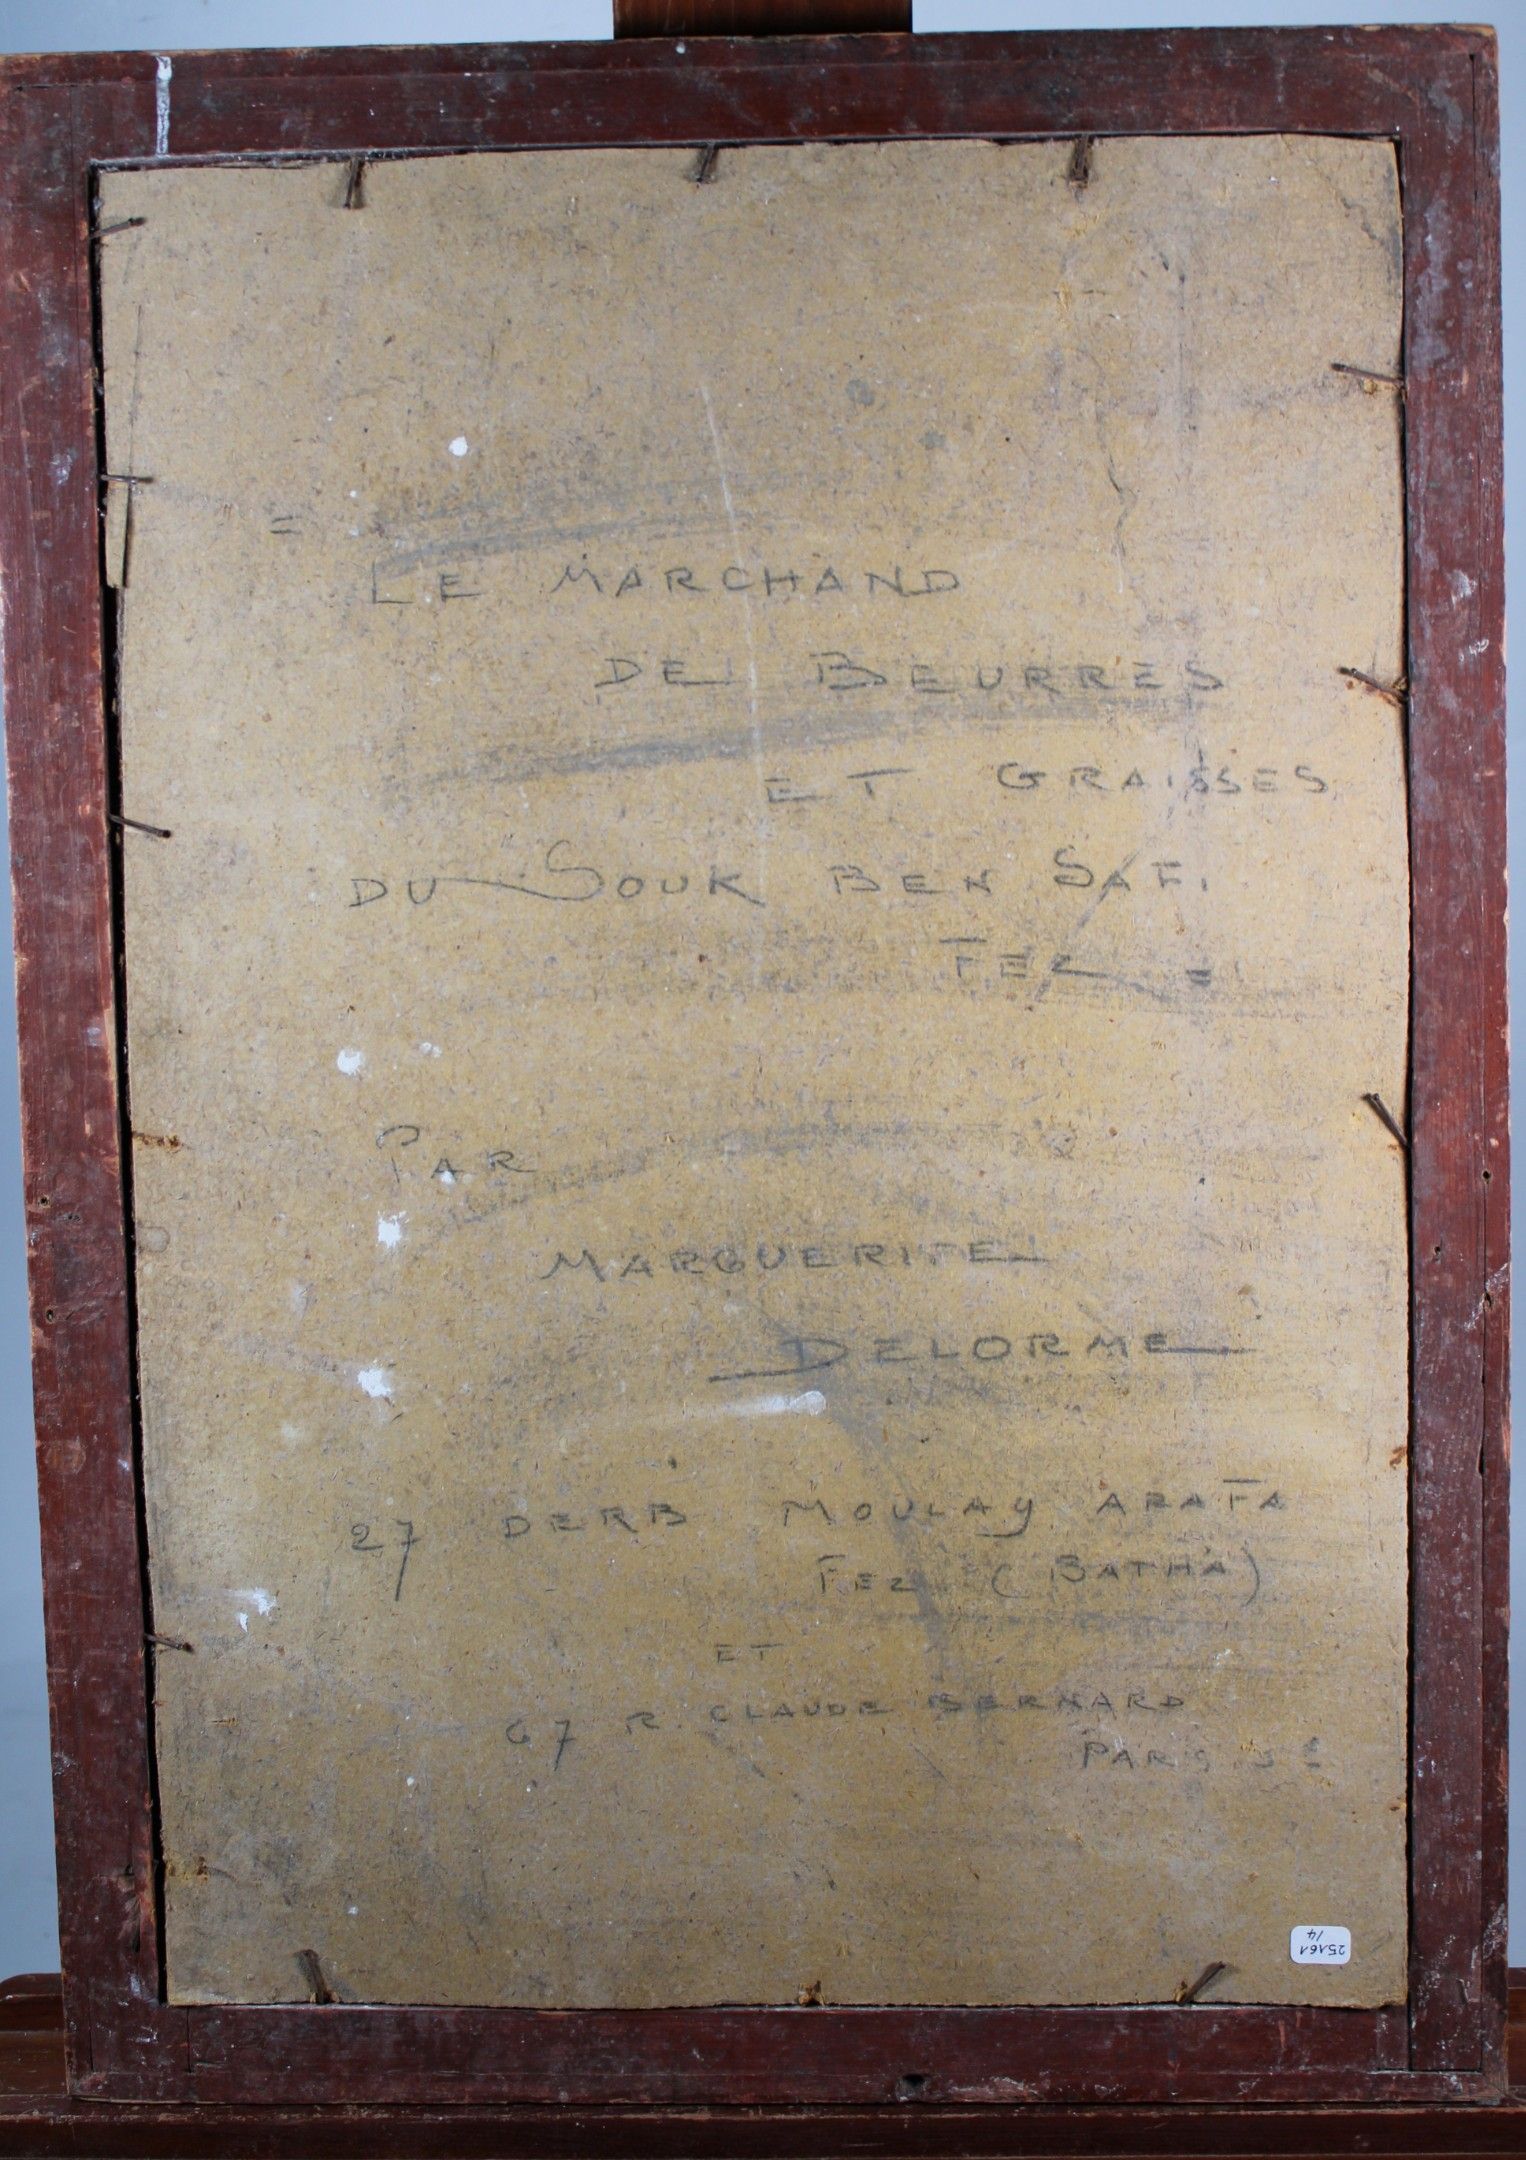 = LE MARCHAND
DE BEURRES
ET GRAISSES
DU SOUK BEN SAFI
FEZ =
PAR
MARGUERITE
DELORME
27 DERB MOULAY ARAFA
FEZ (BATHA)
ET
67 R. CLAUDE BERNARD
PARIS 5E
25161
14